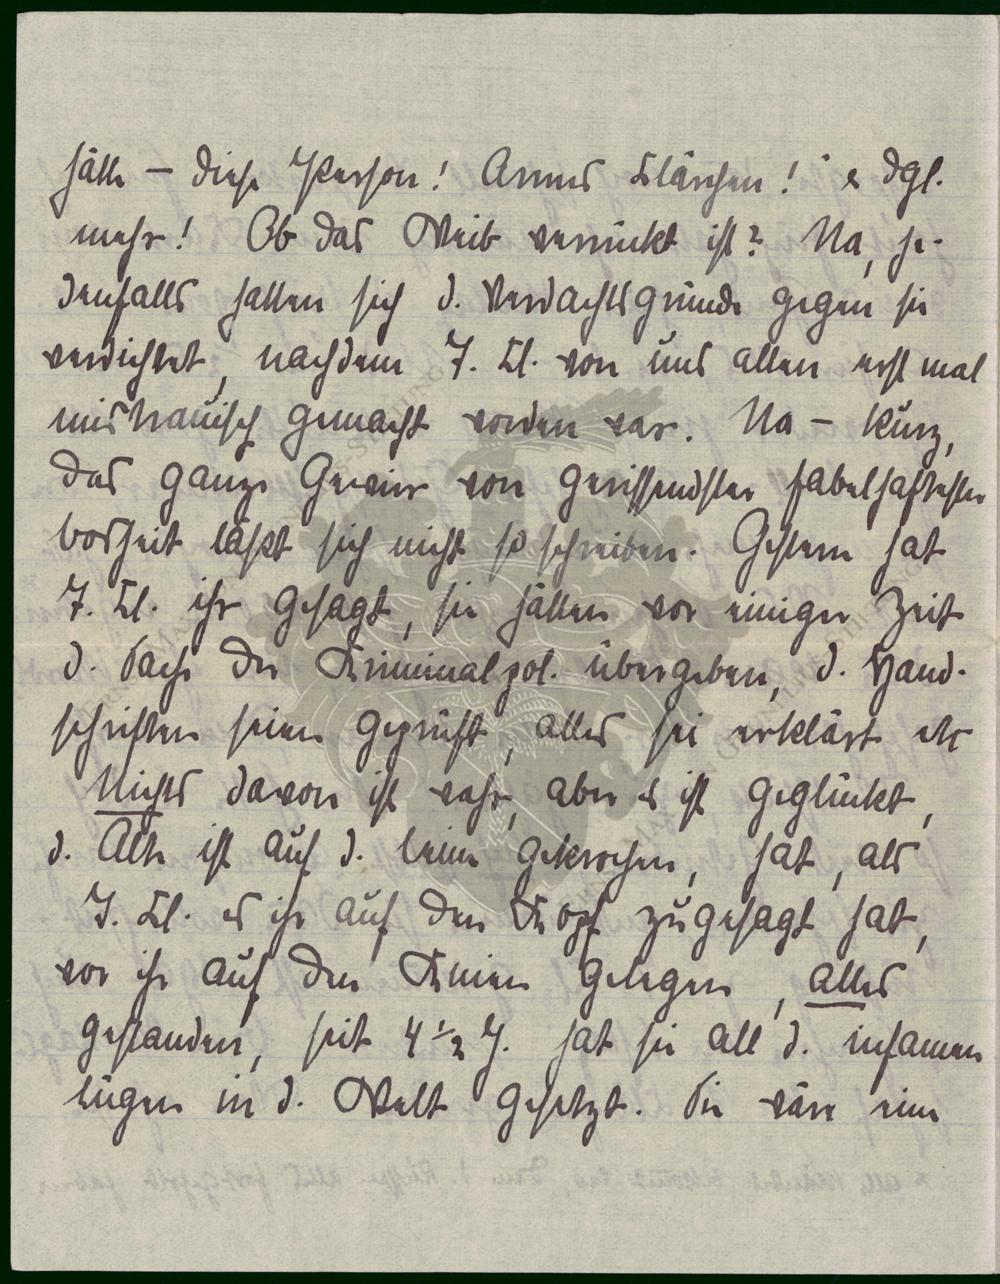 hätte – diese Person! Armes Klärchen!" & dgl.
mehr! Ob das Weib verrückt ist? Na, je-
denfalls hatten sich d. Verdachtsgründe gegen sie
verdichtet, nachdem T. Kl. von uns allen erst mal
mistrauisch gemacht worden war. Na – kurz,
das ganze Gewirr von gerissendster fabelhaftester
Bosheit läßt sich nicht so schreiben. Gestern hat
T. Kl. ihr gesagt, sie hätten vor einiger Zeit
d. Sache der Kriminalpol. übergeben, d. Hand-
schriften seien geprüft, alles sei erklärt etc
Nichts davon ist wahr, aber es ist geglückt,
d. Alte ist auf d. Leim gekrochen, hat, als
T. Kl. es ihr auf den Kopf zugesagt hat,
vor ihr auf den Knien gelegen, alles
gestanden, seit 4 ½ J. hat sie all d. infamen
Lügen in d. Welt gesetzt. Sie wäre eine